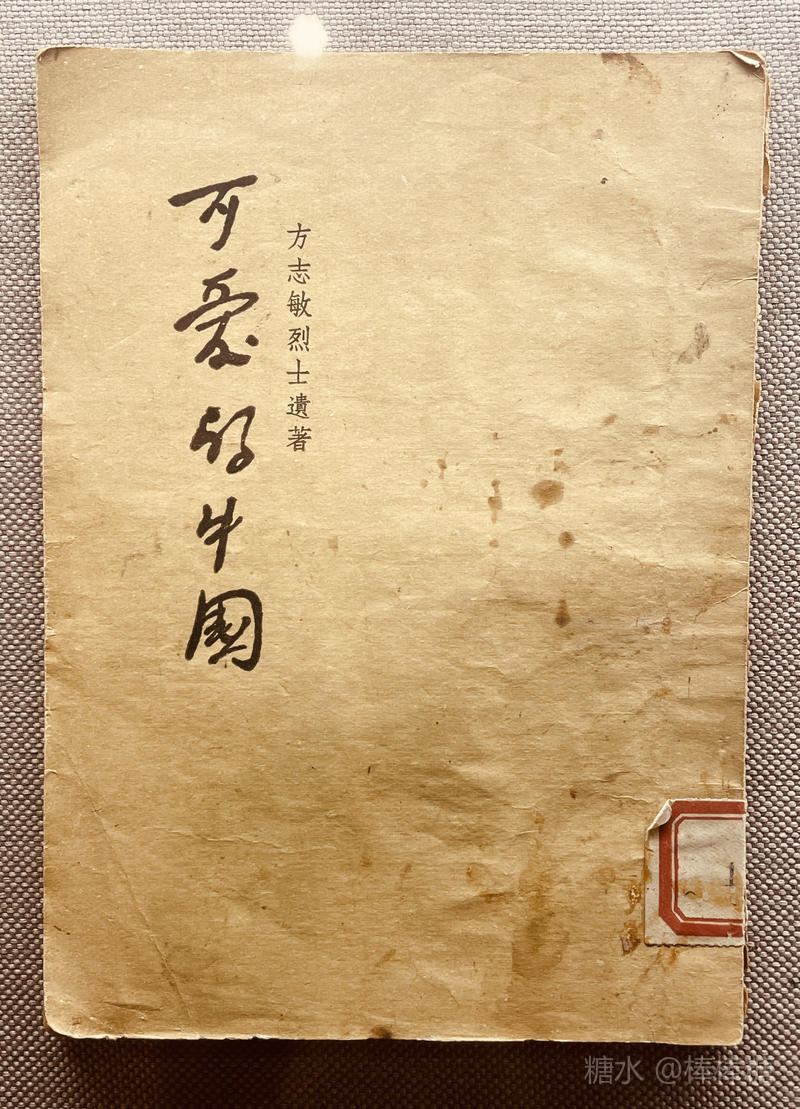 方志敏烈士遺著
可爱的中國
糖水 @棒棒